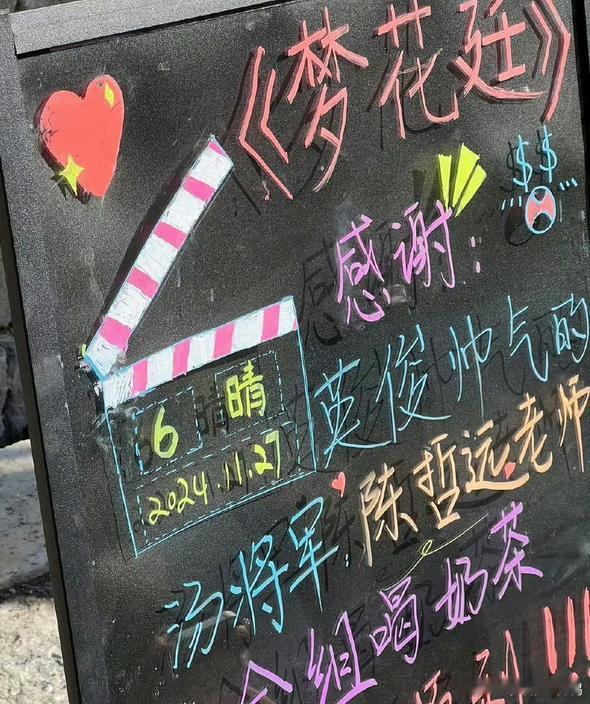 《梦花廷》
$ $
感谢:
英俊帅气的
6 晴
2024.11.27
汤将军 陈哲远老师
组喝奶茶
!!!